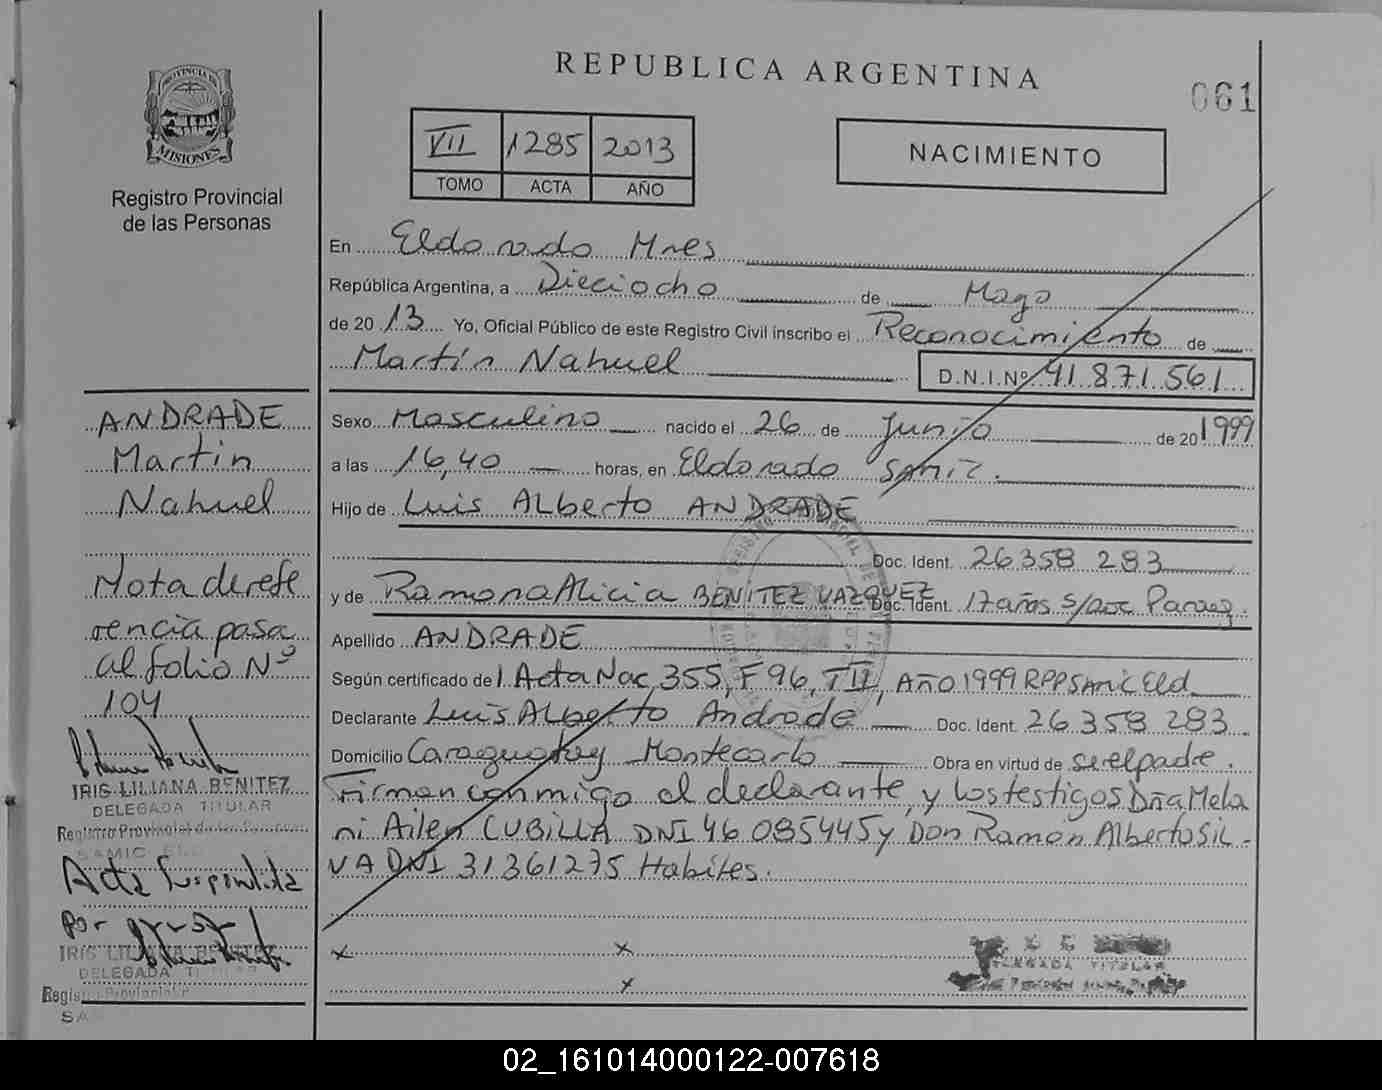 REPUBLICA ARGENTINA
061
PROVINCIA DE
MISIONES
Registro Provincial
de las Personas
VII 1285 2013
TOMO ACTA AÑO
NACIMIENTO
En Eldorado Mnes
República Argentina, a Dieciocho de Mayo
de 20 13 Yo, Oficial Público de este Registro Civil inscribo el Reconocimiento de
Martín Nahuel D.N.I.Nº 41.871.561
Sexo Masculino nacido el 26 de Junio de 20 1999
a las 16,40 horas, en Eldorado SAMIC.
Hijo de Luis ALberto ANDRADE
Doc. Ident. 26.358 283
y de Ramona Alicia BENITEZ VAZQUEZ Doc. Ident. 17 años s/doc Parag.
Apellido ANDRADE
Según certificado de Acta Nac 355, F 96, T II, AÑO 1999 RPPSAMIC Eld
Declarante Luis ALberto Andrade Doc. Ident. 26.358 283
Domicilio Caraguatay Montecarlo Obra en virtud de se el padre.
Firman conmigo el declarante, y los testigos Dña Mela
ni Ailen CUBILLA DNI 46.085445 y Don Ramón Alberto SIL-
VA DNI 31361275 Habiles.
x x
x
TITULAR
ANDRADE
Martin
Nahuel
Nota de refe
rencia pasa
al folio Nº
104
IRIS LILIANA BENITEZ
DELEGADA TITULAR
Registro Provincial de las Personas
SAMIC
Acta Suspendida
por
IRIS LILIANA BENITEZ
DELEGADA
Registro Provincial
SA
02_161014000122-007618